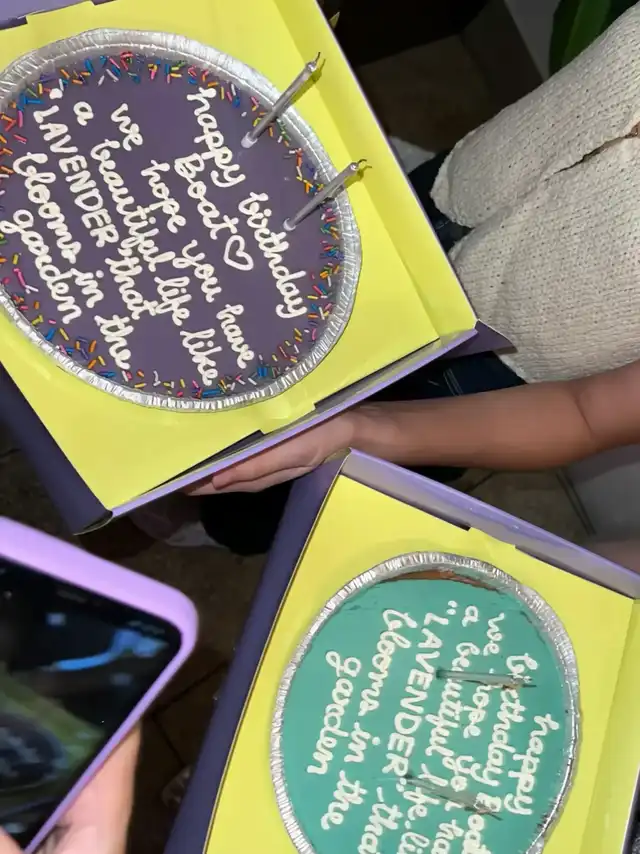 happy birthday
Boat♡
we hope you have
a beautiful life like
"LAVENDER" that
blooms in the
garden
happy
birthday
we hope you
a beautiful life
"LAVENDER"
blooms in the
garden